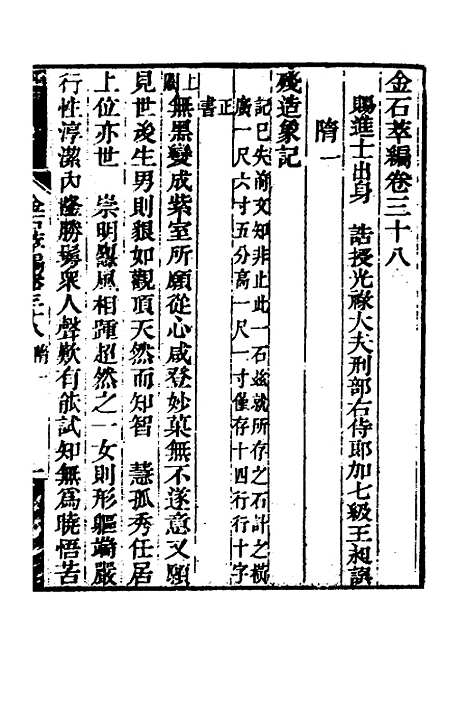 金石萃編卷三十八
賜進士出身　誥授光祿大夫刑部右侍郎加七級王昶譔
隋一
殘造象記
記已失前文知非止此一石茲就所存之石計之橫
廣一尺六寸五分高一尺一寸僅存十四行行十字
正書
上闕無黑變成紫室所願從心咸登妙菓無不遂意又願
見世後生男則貌如觀頂天然而知智　慧孤秀任居
上位亦世　崇明飄風相踵超然之一女則形軀端嚴
行性淳潔內隆勝衆人聲歎有能試知無為曉悟苦
金石萃編卷三十八　隋一　一